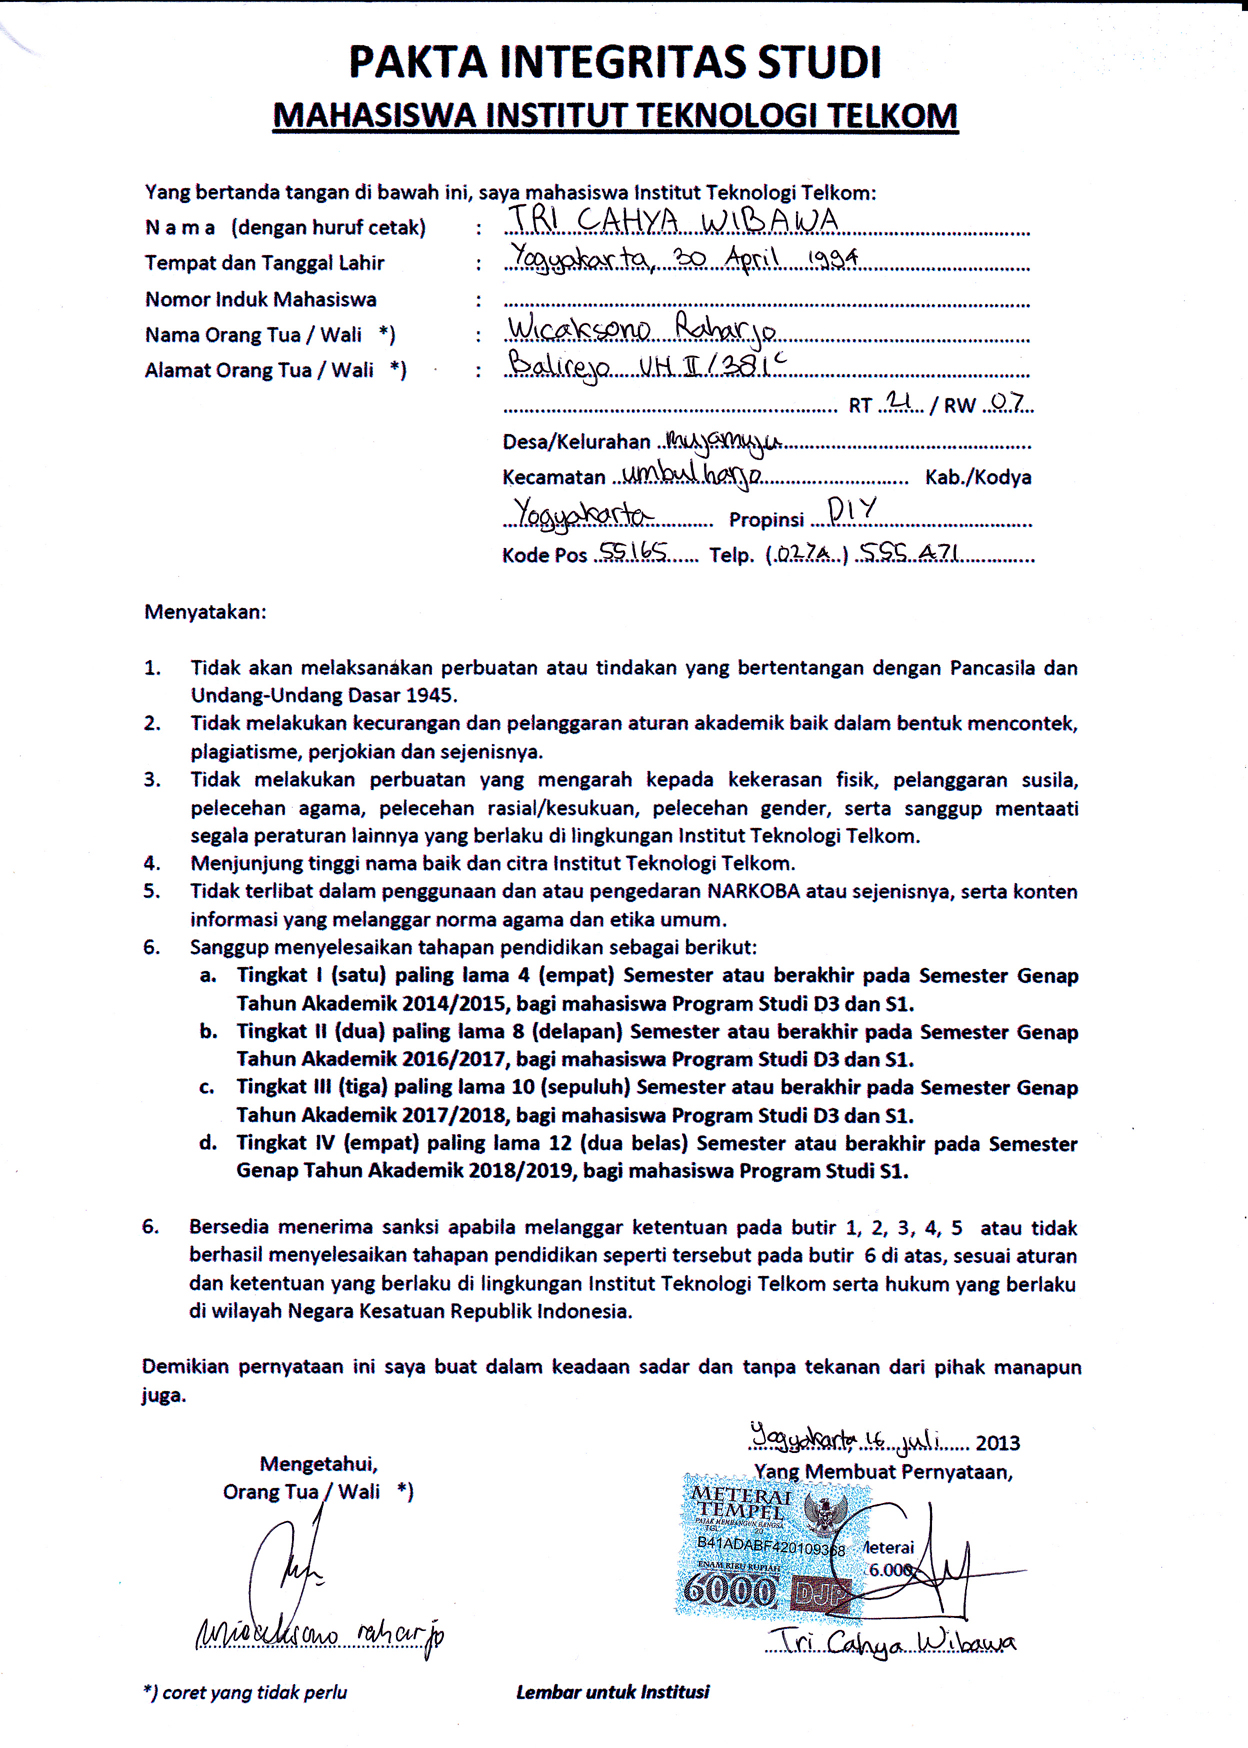 PAKTA INTEGRITAS STUDI
MAHASISWA INSTITUT TEKNOLOGI TELKOM
Yang bertanda tangan di bawah ini, saya mahasiswa Institut Teknologi Telkom:
N a m a (dengan huruf cetak) : TRI CAHYA WIBAWA
Tempat dan Tanggal Lahir : Yogyakarta, 30 April 1994
Nomor Induk Mahasiswa :
Nama Orang Tua / Wali *) : Wicaksono Raharjo
Alamat Orang Tua / Wali *) : Balirejo UH II / 381 C
RT 21 / RW 07
Desa/Kelurahan mujamuju
Kecamatan umbulharjo Kab./Kodya
Yogyakarta Propinsi DIY
Kode Pos 55165 Telp. (0274) 555 471
Menyatakan:
1. Tidak akan melaksanakan perbuatan atau tindakan yang bertentangan dengan Pancasila dan
Undang-Undang Dasar 1945.
2. Tidak melakukan kecurangan dan pelanggaran aturan akademik baik dalam bentuk mencontek,
plagiatisme, perjokian dan sejenisnya.
3. Tidak melakukan perbuatan yang mengarah kepada kekerasan fisik, pelanggaran susila,
pelecehan agama, pelecehan rasial/kesukuan, pelecehan gender, serta sanggup mentaati
segala peraturan lainnya yang berlaku di lingkungan Institut Teknologi Telkom.
4. Menjunjung tinggi nama baik dan citra Institut Teknologi Telkom.
5. Tidak terlibat dalam penggunaan dan atau pengedaran NARKOBA atau sejenisnya, serta konten
informasi yang melanggar norma agama dan etika umum.
6. Sanggup menyelesaikan tahapan pendidikan sebagai berikut:
a. Tingkat I (satu) paling lama 4 (empat) Semester atau berakhir pada Semester Genap
Tahun Akademik 2014/2015, bagi mahasiswa Program Studi D3 dan S1.
b. Tingkat II (dua) paling lama 8 (delapan) Semester atau berakhir pada Semester Genap
Tahun Akademik 2016/2017, bagi mahasiswa Program Studi D3 dan S1.
c. Tingkat III (tiga) paling lama 10 (sepuluh) Semester atau berakhir pada Semester Genap
Tahun Akademik 2017/2018, bagi mahasiswa Program Studi D3 dan S1.
d. Tingkat IV (empat) paling lama 12 (dua belas) Semester atau berakhir pada Semester
Genap Tahun Akademik 2018/2019, bagi mahasiswa Program Studi S1.
6. Bersedia menerima sanksi apabila melanggar ketentuan pada butir 1, 2, 3, 4, 5 atau tidak
berhasil menyelesaikan tahapan pendidikan seperti tersebut pada butir 6 di atas, sesuai aturan
dan ketentuan yang berlaku di lingkungan Institut Teknologi Telkom serta hukum yang berlaku
di wilayah Negara Kesatuan Republik Indonesia.
Demikian pernyataan ini saya buat dalam keadaan sadar dan tanpa tekanan dari pihak manapun
juga.
Yogyakarta, 16 juli 2013
Mengetahui,
Yang Membuat Pernyataan,
Orang Tua / Wali *)
METERAI
TEMPEL
PAJAK MEMBANGUN BANGSA
TGL 20
B41ADABF420109368
Meterai
ENAM RIBU RUPIAH
6.000
6000 DJP
wicaksono raharjo
Tri Cahya Wibawa
*) coret yang tidak perlu
Lembar untuk Institusi